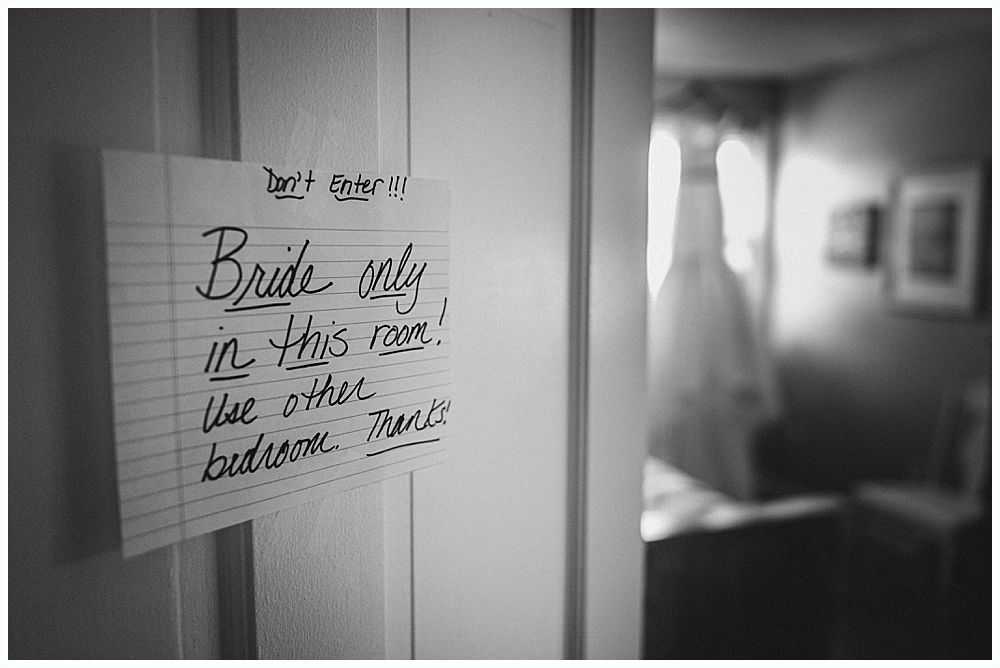 Don't Enter!!!
Bride only
in this room!
Use other
bedroom. Thanks!